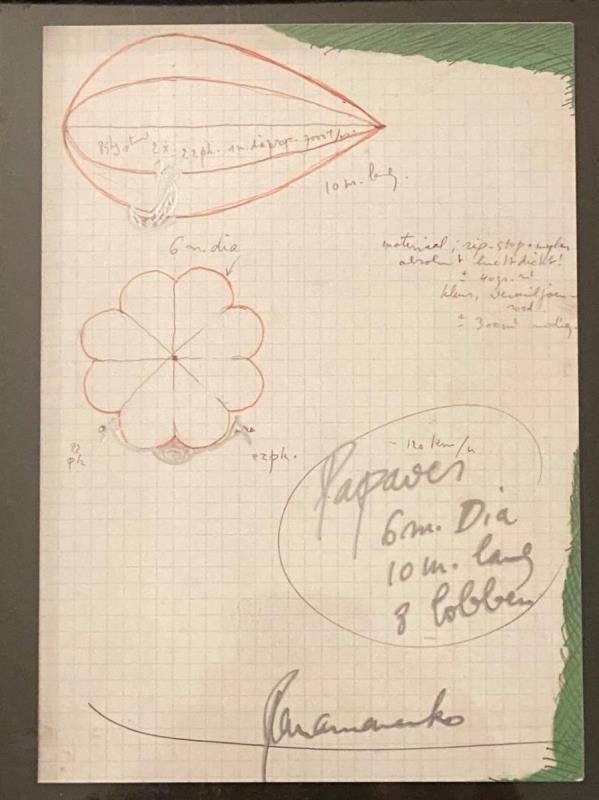 2 x 22pk. 1m. diaprop.
10 m. lang.
6 m. dia
materiaal; rip-stop-mylar
absoluut luchtdicht!
± 40gr. m²
kleur, vermiljoen
rood
± 300m² nodig
22
pk
22pk.
120 km/u
Papaver
6m. Dia
10 m. lang
8 lobben
Panamarenko